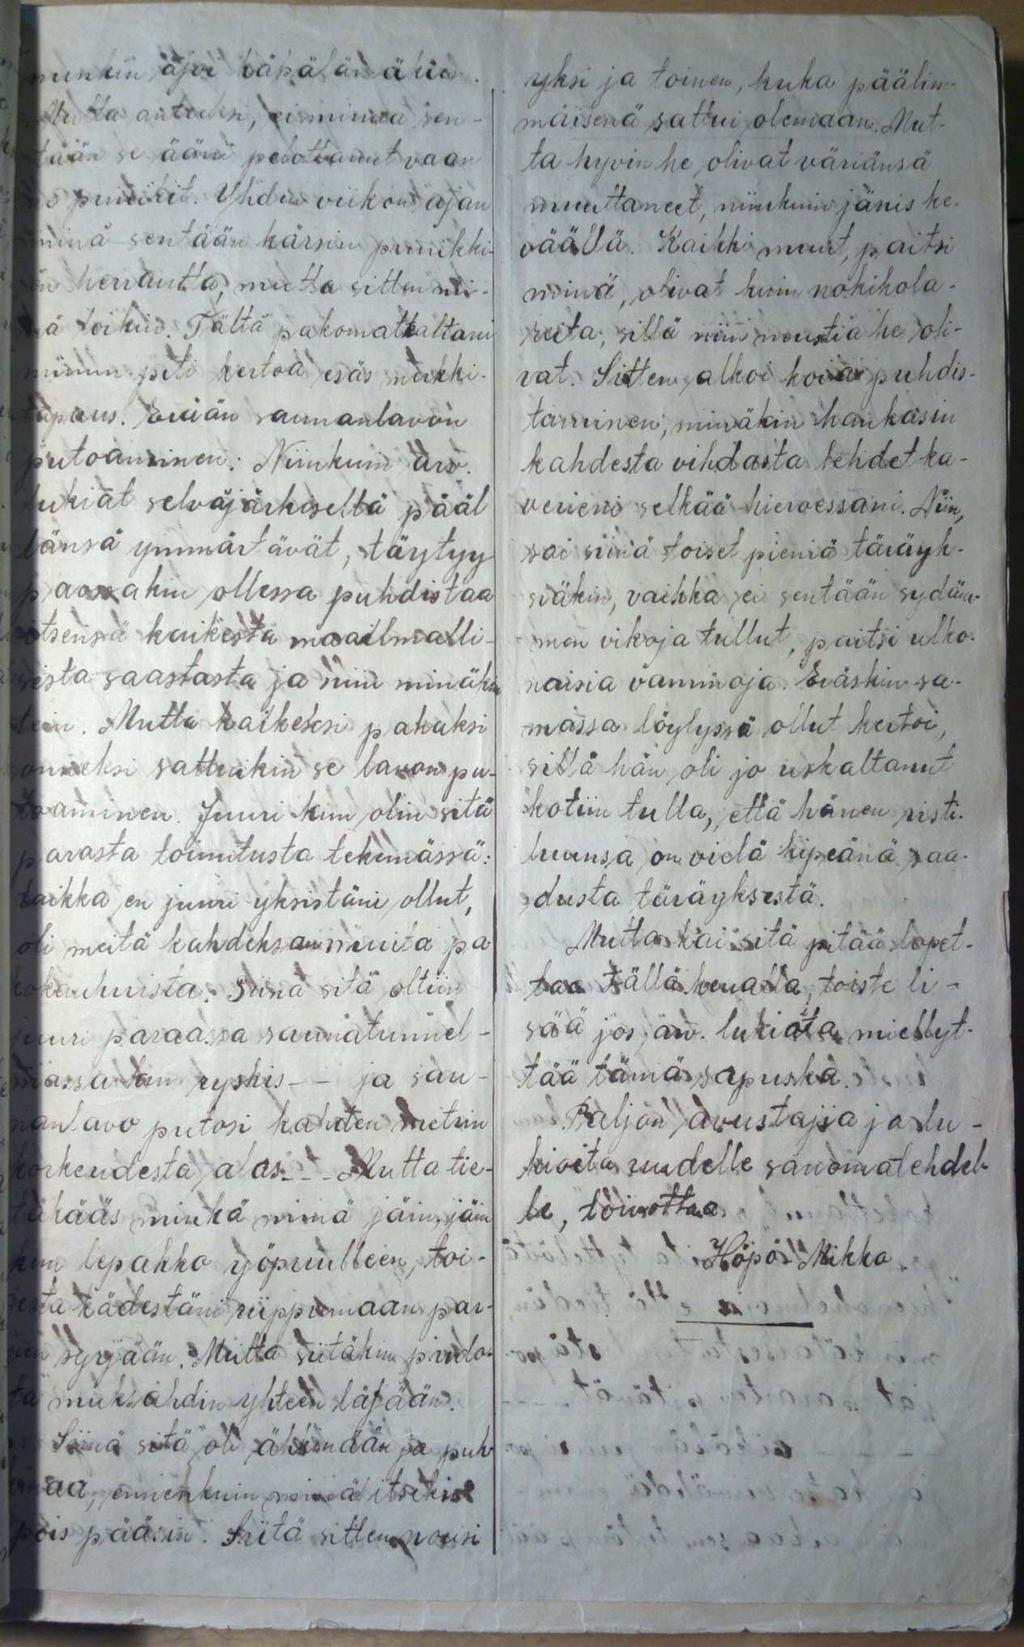 minkin ajoi käpälämäkeen.
Mutta auttaksi, ei minua sen-
tään se ääni peloittanut vaan
ne puniikit. Yhden viikon ajan
minä sentään kärsin puniikki-
en herrautta, mutta sitten mi-
nä loikin. Tältä pakomatkaltani
minun piti kertoa eräs merkki-
tapaus. Erään saunanlavon
putoaminen. Niinkuin arv.
lukiat selväjärkiseltä pääl
tänsä ymmärtävät, täytyy
paossakin ollessa puhdistaa
itsensä kaikesta maailmalli-
sesta saastasta ja niin minäkin
tein. Mutta kaikeksi pahaksi
onneksi sattuikin se lavon pu-
toaminen. Juuri kun olin sitä
parasta toimitusta tekemässä:
taikka en juuri yksistäni ollut,
oli meitä kahdeksan muuta pa
kokauhuista. Siinä sitä oltiin
juuri paraassa saunatunnel-
massa kun ryskis - - ja sau-
nanlavo putosi kahden metrin
korkeudesta alas. - - Mutta tie-
täkääs minkä minä jäin, jäin
kun lepakko yöpuulleen, toi-
sesta kädestäni riippumaan par-
ren syrjään. Mutta siitäkin pudo-
ta muksahdin yhteen läjään.
Siinä sitä oli ähkinään ja puh
inaa, ennenkuin minä itsekin
pois pääsin. Siitä sitten nousi
yksi ja toinen, kuka päälim-
mäisenä sattui olemaan. Mut-
ta hyvin he olivat väriänsä
muuttaneet, niinkuin jänis ke-
väällä. Kaikki muut, paitsi
minä, olivat kuin nokikola-
reita, sillä niin mustia he oli-
vat. Sitten alkoi kova puhdis-
taminen, minäkin hankasin
kahdesta vihdasta lehdet ka-
verieni selkää hieroessani. Niin,
sai siinä toiset pieniä täräyk-
siäkin, vaikka ei sentään sydäm-
men vikoja tullut, paitsi ulko-
naisia vammoja. Eräskin sa-
massa löylyssä ollut kertoi,
sillä hän oli jo uskaltanut
kotiin tulla, että hänen risti-
luunsa on vielä kipeänä saa-
dusta täräyksestä.
Mutta kai sitä pitää lopet-
taa tällä kerralla, toiste li-
sää jos arv. lukiata miellyt-
tää tämä sapuska.
Paljon avustajia ja lu-
kioita uudelle sanomalehdel-
le, toivottaa
Höpö-Mikko.